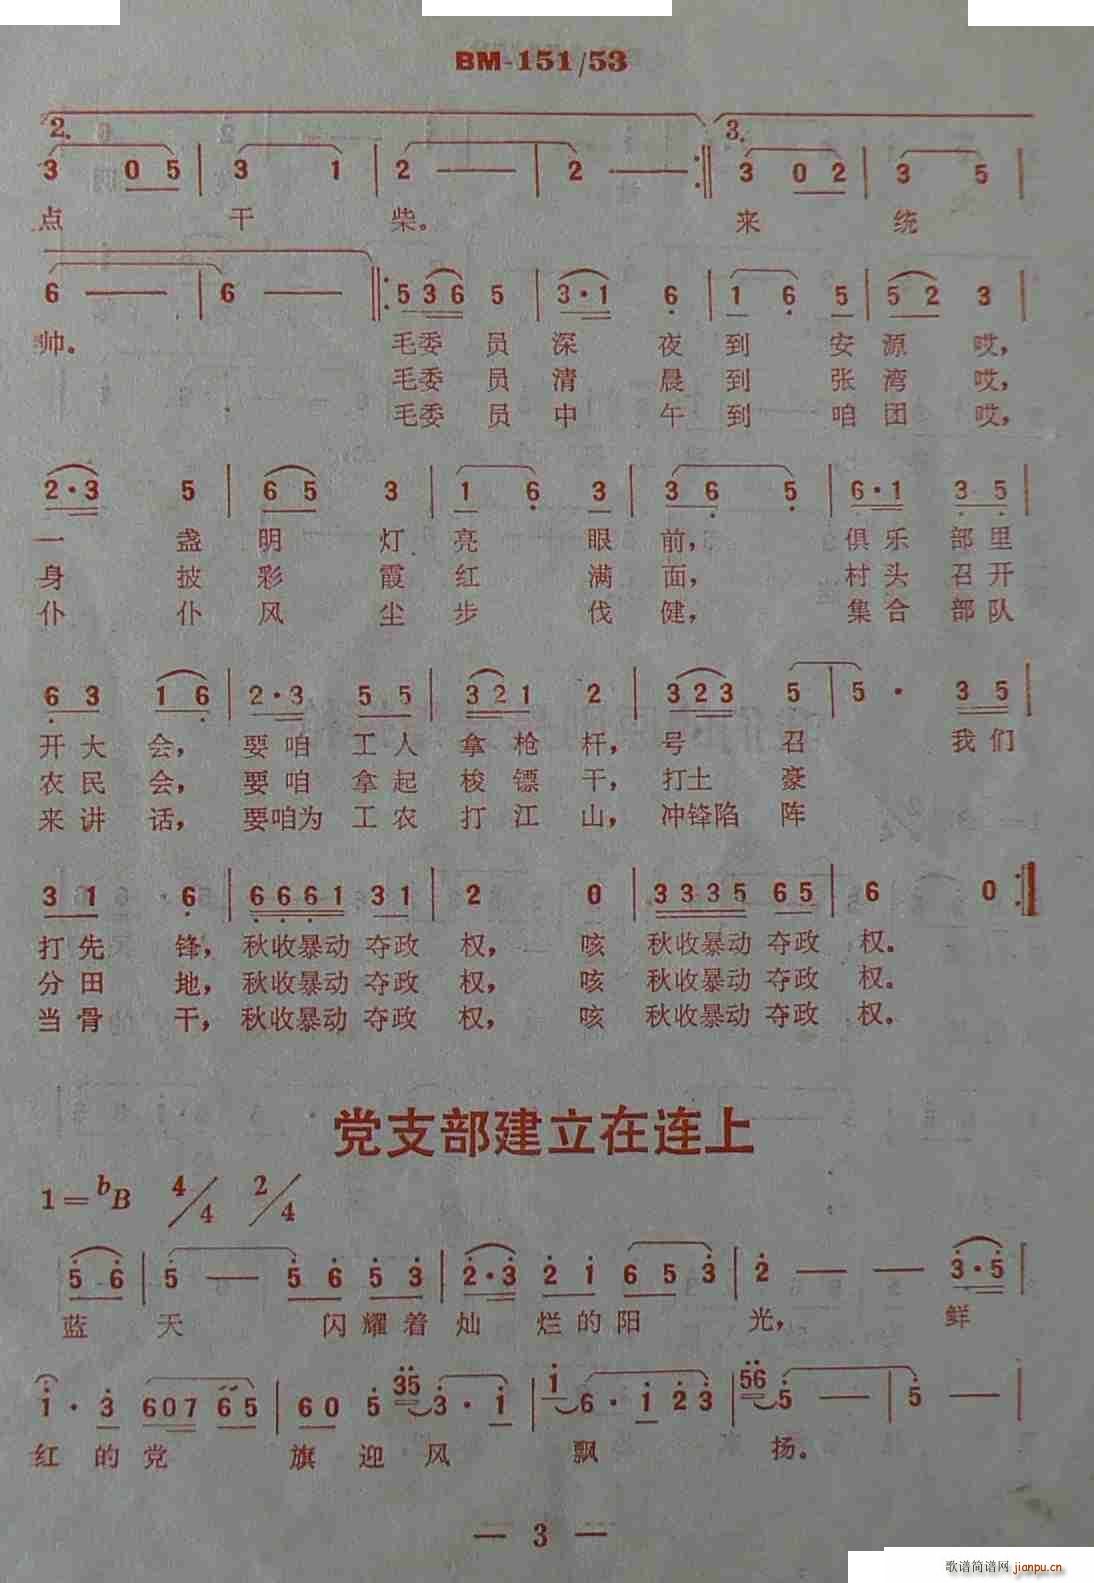 BM-151/53
2. 3.
3 0 5 | 3 1 | 2 — | 2 — :‖ 3 0 2 | 3 5 |
点 干 柴。 来 统
6 — | 6 — :‖ 5 3 6 5 | 3·1 6 | 1 6 5 | 5 2 3 |
帅。 毛委 员 深 夜 到 安 源 哎，
毛委 员 清 晨 到 张 湾 哎，
毛委 员 中 午 到 咱 团 哎，
2·3 5 | 6 5 3 | 1 6 3 | 3 6 5 | 6·1 3 5 |
一 盏 明 灯 亮 眼 前， 俱乐 部里
身 披 彩 霞 红 满 面， 村头 召开
仆 仆 风 尘 步 伐 健， 集合 部队
6 3 1 6 | 2·3 5 5 | 3 2 1 2 | 3 2 3 5 | 5 · 3 5 |
开大 会， 要咱 工人 拿枪 杆， 号 召 我们
农民 会， 要咱 拿起 梭镖 干， 打土 豪
来讲 话， 要咱为 工农 打江 山， 冲锋陷 阵
3 1 6 | 6 6 6 1 3 1 | 2 0 | 3 3 3 5 6 5 | 6 0 :‖
打先 锋， 秋收暴动 夺政 权， 咳 秋收暴动 夺政 权。
分田 地， 秋收暴动 夺政 权， 咳 秋收暴动 夺政 权。
当骨 干， 秋收暴动 夺政 权， 咳 秋收暴动 夺政 权。
党支部建立在连上
1=bB 4/4 2/4
5 6 | 5 — 5 6 5 3 | 2·3 2 1 6 5 3 | 2 — — 3·5 |
蓝 天 闪耀着灿 烂的阳 光， 鲜
1 · 3 6 0 7 6 5 | 6 0 5 35 3 · 1 | 1 6 · 1 2 3 | 56 5 — | 5 — |
红 的党 旗 迎 风 飘 扬。
— 3 —
歌谱简谱网 jianpu.cn